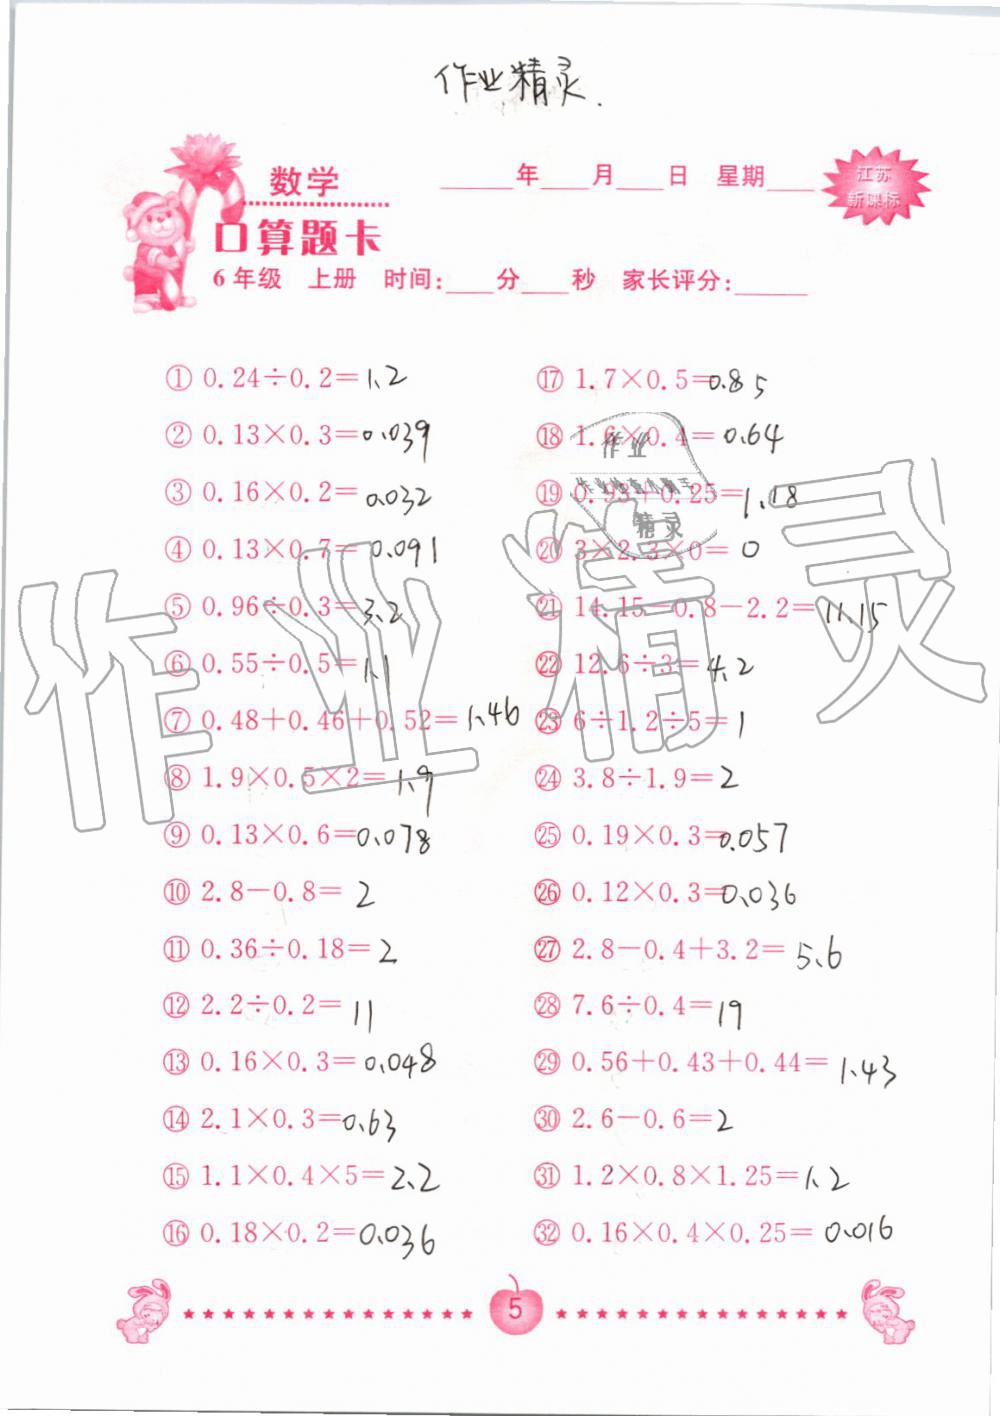 作业精灵.
数学
____年____月____日 星期____
江苏
新课标
口算题卡
6年级 上册 时间:____分____秒 家长评分:____
① 0.24÷0.2=1.2
② 0.13×0.3=0.039
③ 0.16×0.2=0.032
④ 0.13×0.7=0.091
⑤ 0.96÷0.3=3.2
⑥ 0.55÷0.5=1.1
⑦ 0.48+0.46+0.52=1.46
⑧ 1.9×0.5×2=1.9
⑨ 0.13×0.6=0.078
⑩ 2.8-0.8=2
⑪ 0.36÷0.18=2
⑫ 2.2÷0.2=11
⑬ 0.16×0.3=0.048
⑭ 2.1×0.3=0.63
⑮ 1.1×0.4×5=2.2
⑯ 0.18×0.2=0.036
⑰ 1.7×0.5=0.85
⑱ 1.6×0.4=0.64
⑲ 0.93+0.25=1.18
⑳ 3×2.3×0=0
㉑ 14.15-0.8-2.2=11.15
㉒ 12.6÷3=4.2
㉓ 6÷1.2÷5=1
㉔ 3.8÷1.9=2
㉕ 0.19×0.3=0.057
㉖ 0.12×0.3=0.036
㉗ 2.8-0.4+3.2=5.6
㉘ 7.6÷0.4=19
㉙ 0.56+0.43+0.44=1.43
㉚ 2.6-0.6=2
㉛ 1.2×0.8×1.25=1.2
㉜ 0.16×0.4×0.25=0.016
5
作业精灵
作业
作业检查小助手
精灵